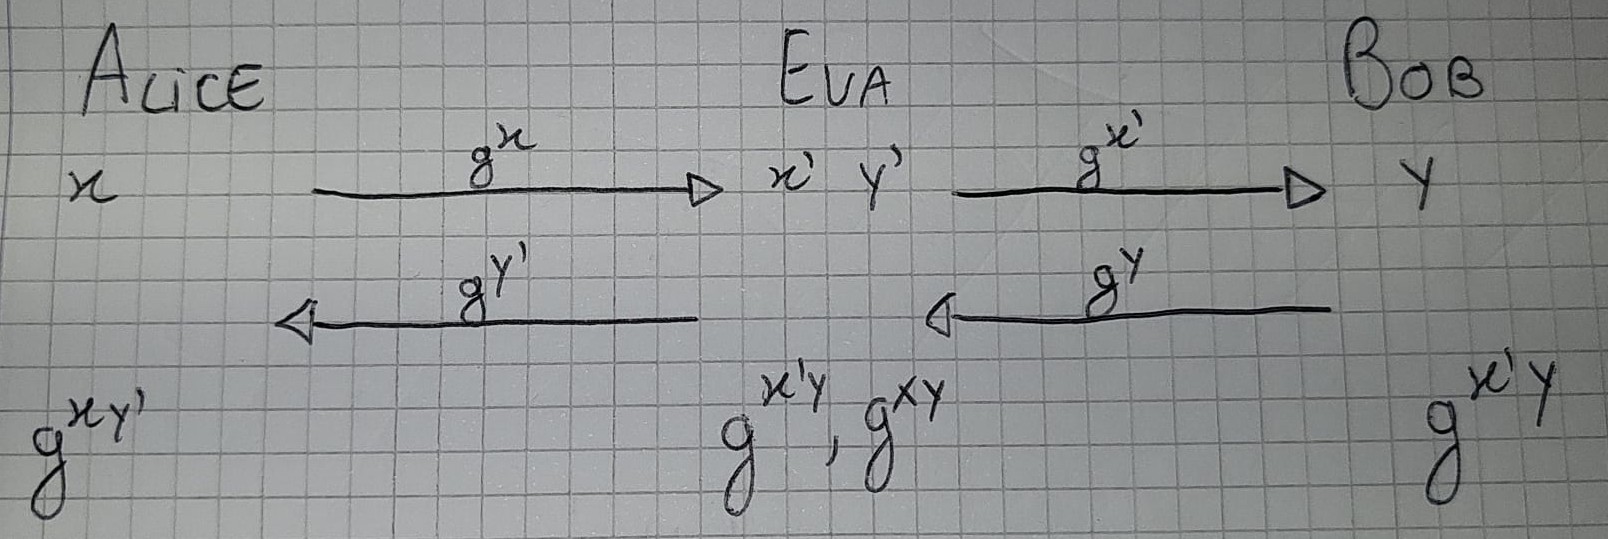 ALICE EVA BOB
x g^x x' y' g^x' y
g^y' g^y
g^xy' g^x'y, g^xy g^x'y